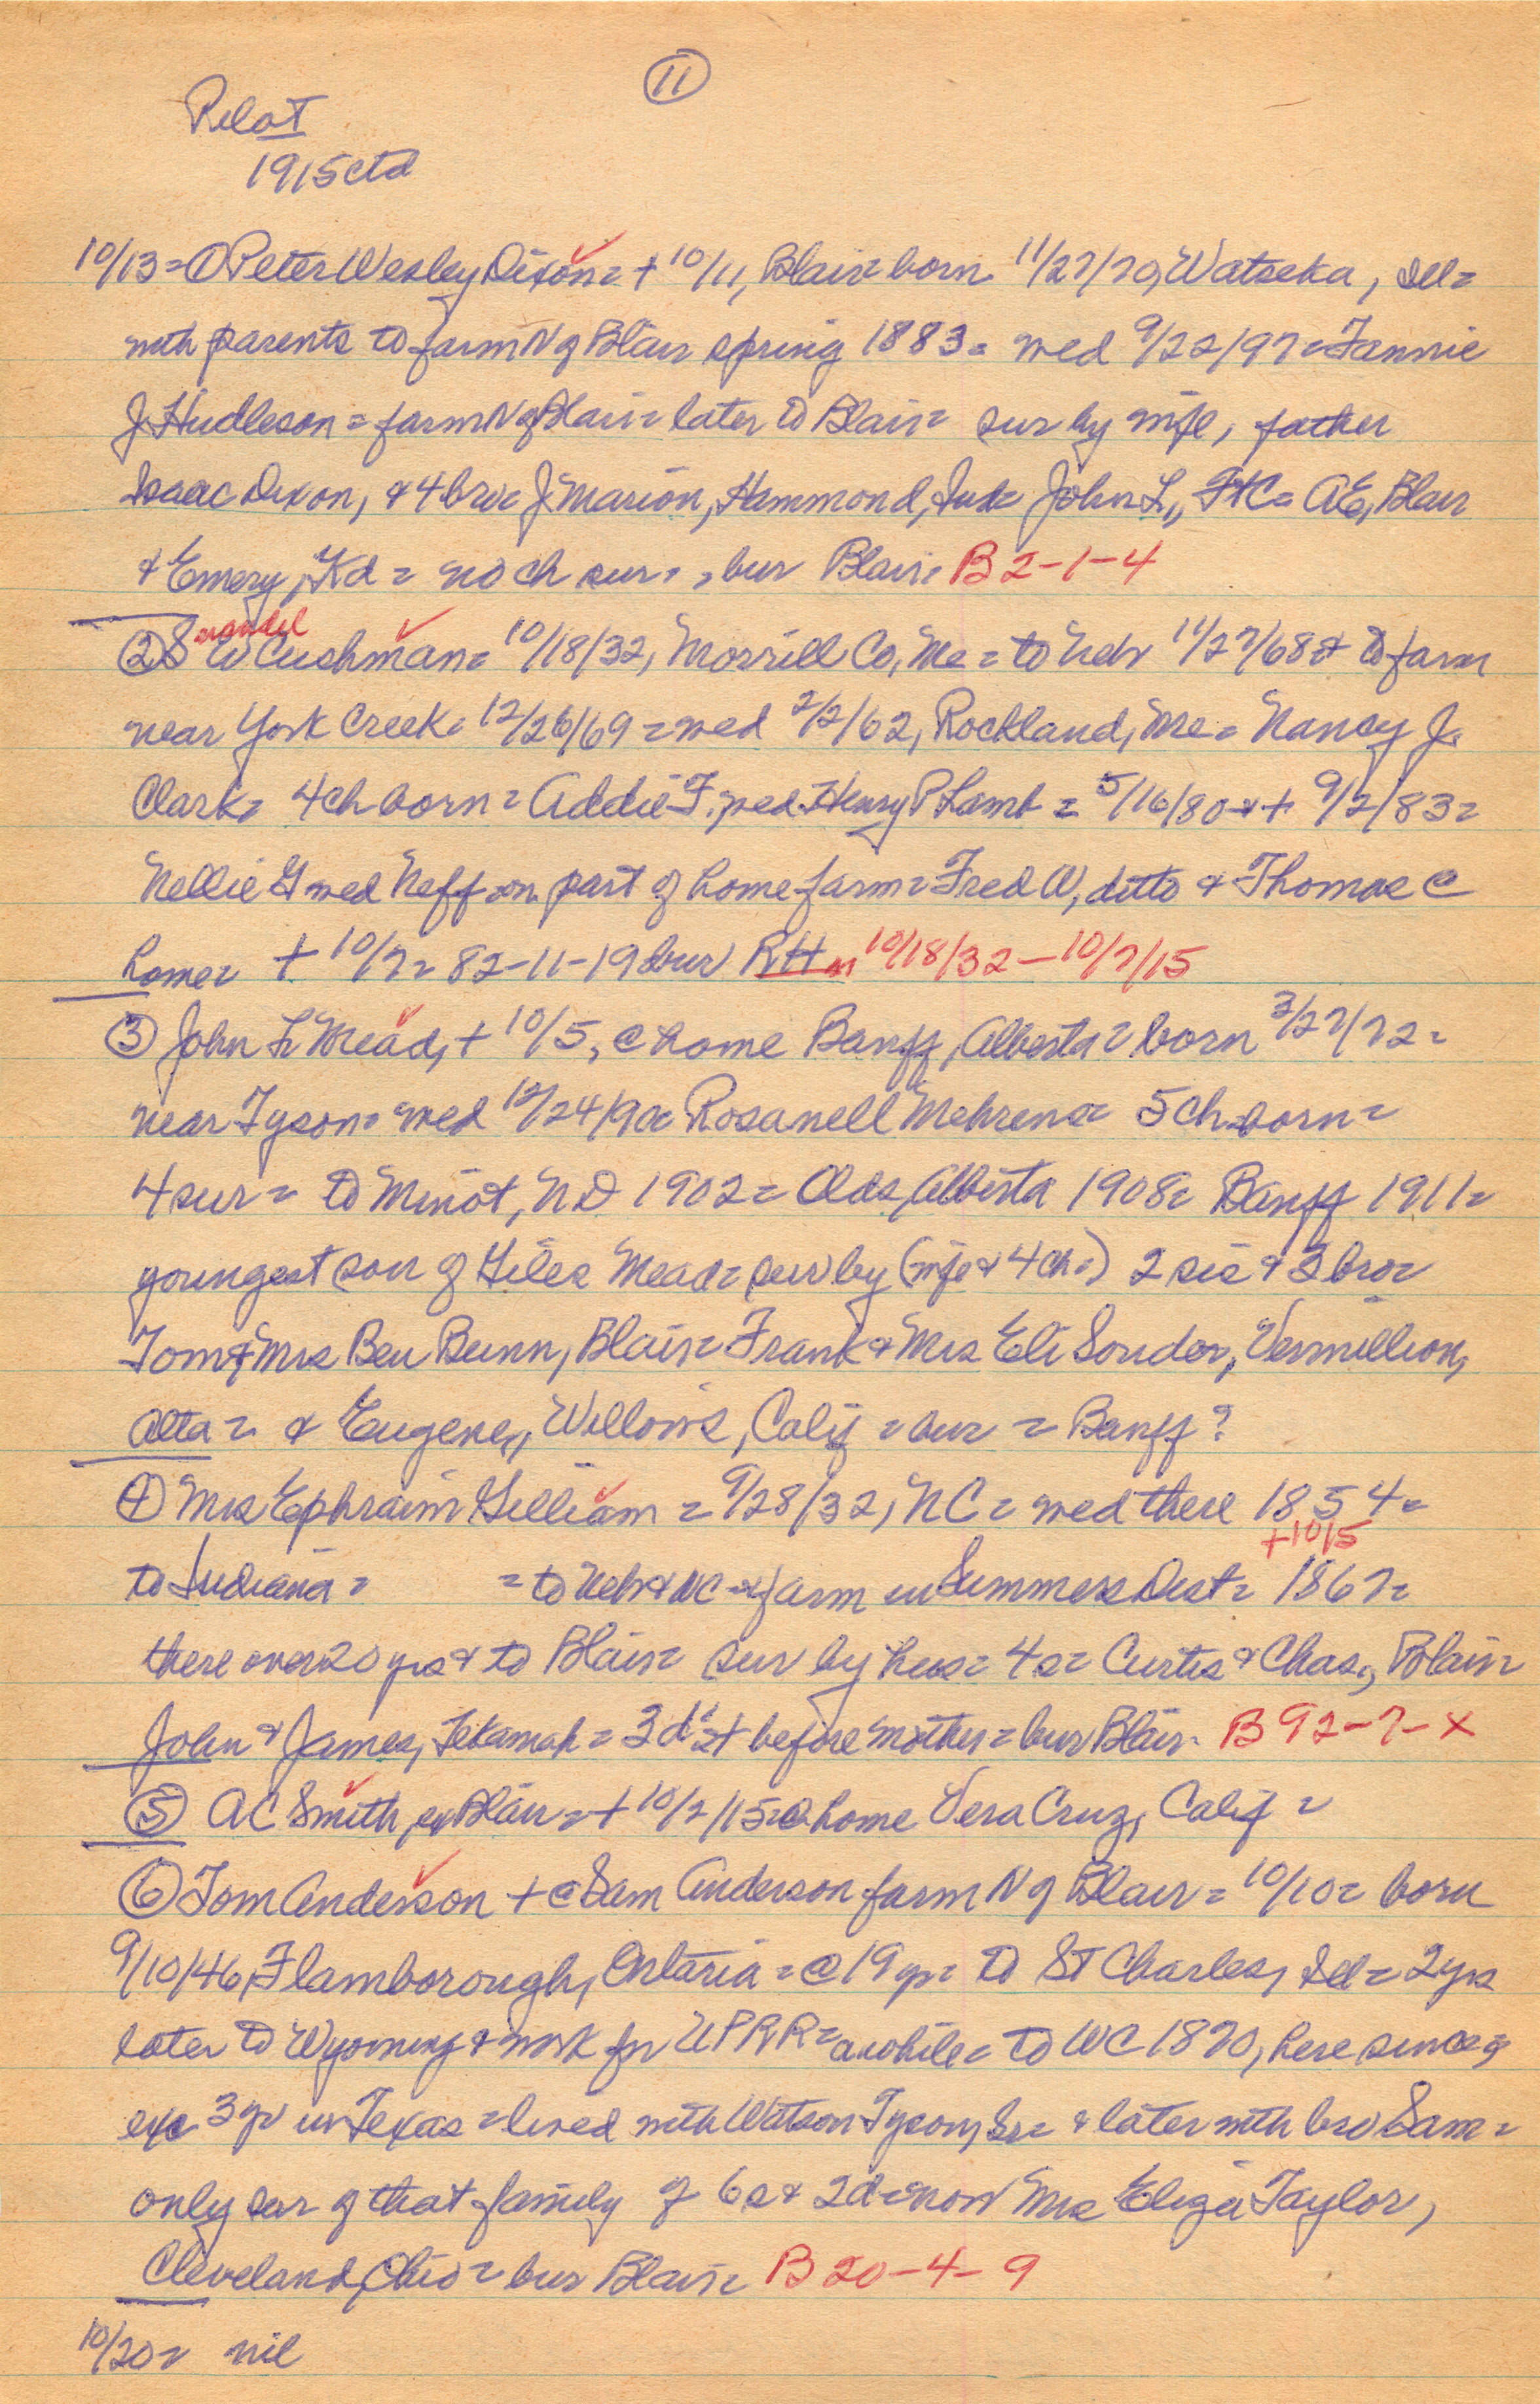 11
Pilot
1915 ctd
10/13 = ① Peter Wesley Dixon = + 10/11, Blair = born 11/27/70, Watseka, Ill =
with parents to farm N of Blair spring 1883 = wed 9/22/97 = Fannie
J. Hudleson = farm N of Blair = later to Blair = sur by wife, father
Isaac Dixon, & 4 bro = J. Marion, Hammond, Ind = John L., FtC = AE, Blair
& Emery, Kd = no ch sur = bur Blair = B 2-1-4
② S W Cushman = 10/18/32, Morrill Co, Me = to Neb 11/27/68 = & to farm
near York Creek = 12/26/69 = wed 2/2/62, Rockland, Me = Nancy J.
Clark = 4 ch born = Addie F. wed Henry P Lamb = 5/16/80 & + 9/2/83 =
Nellie G wed Neff on part of home farm = Fred W, ditto & Thomas @
home = + 10/7 = 82-11-19 bur RH 10/18/32 – 10/7/15
③ John L Mead, + 10/5, @ home Banff, Alberta = born 3/27/72 =
near Tyson = wed 12/24/90 = Rosanell Mehrens = 5 ch born =
4 sur = to Minot, ND 1902 = Olds, Alberta 1908 = Banff 1911 =
youngest son of Giles Mead = sur by (wife & 4 ch.) 2 sis & 3 bro =
Tom & Mrs Ben Bunn, Blair = Frank & Mrs Eli Souder, Vermillion,
Alta = & Eugene, Willows, Calif = bur = Banff?
④ Mrs Ephraim Gilliam = 9/28/32, NC = wed there 1854 =
+10/5
to Indiana = = to Neb & WC & farm in Summers Dist = 1867 =
there over 20 yrs & to Blair = sur by hus = 4 s = Curtis & Chas., Blair =
John & James, Tekamah = 3 d's + before mother = bur Blair. B 92-7-X
⑤ AC Smith, ex Blair = + 10/2/15 @ home Vera Cruz, Calif =
⑥ Tom Anderson + @ Sam Anderson farm N of Blair = 10/10 = born
9/10/46, Flamborough, Ontaria = @ 19 yr = to St Charles, Ill = 2 yrs
later to Wyoming & work for UPRR = awhile = to WC 1870, here since =
exc 3 yr in Texas = lived with Watson Tyson, Sr = & later with bro Sam =
only sur of that family of 6 s & 2 d = now Mrs Eliza Taylor,
Cleveland, Ohio = bur Blair = B 20-4-9
10/20 = nil